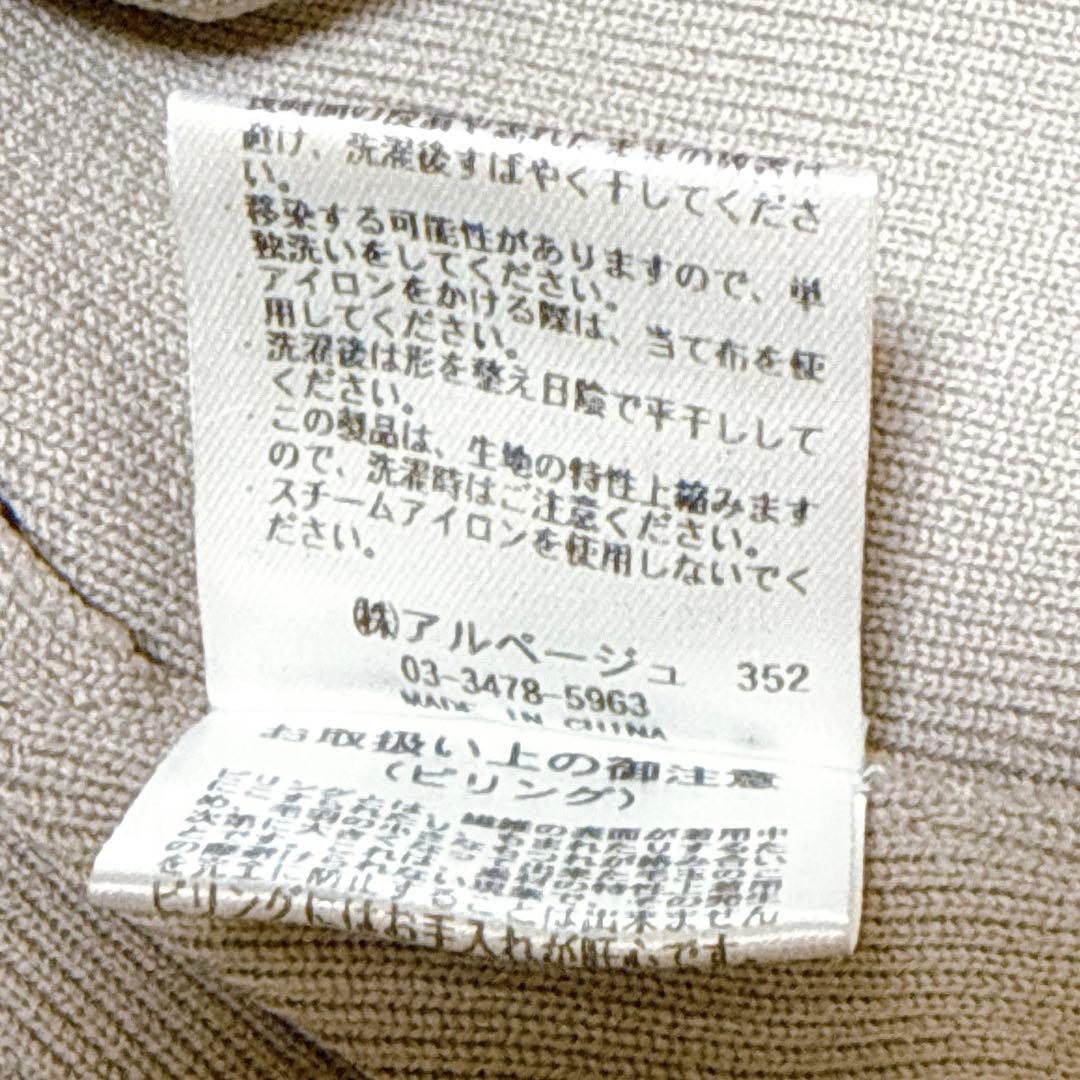 避け、洗濯後すばやく干してくださ
い。
移染する可能性がありますので、単
独洗いをしてください。
アイロンをかける際は、当て布を使
用してください。
洗濯後は形を整え日陰で平干しして
ください。
この製品は、生地の特性上縮みます
ので、洗濯時はご注意ください。
スチームアイロンを使用しないでく
ださい。
㈱アルページュ 352
03-3478-5963
MADE IN CHINA
お取扱い上の御注意
(ピリング)
を完全に防止することは出来ません
ピリングにはお手入れが肝心です。